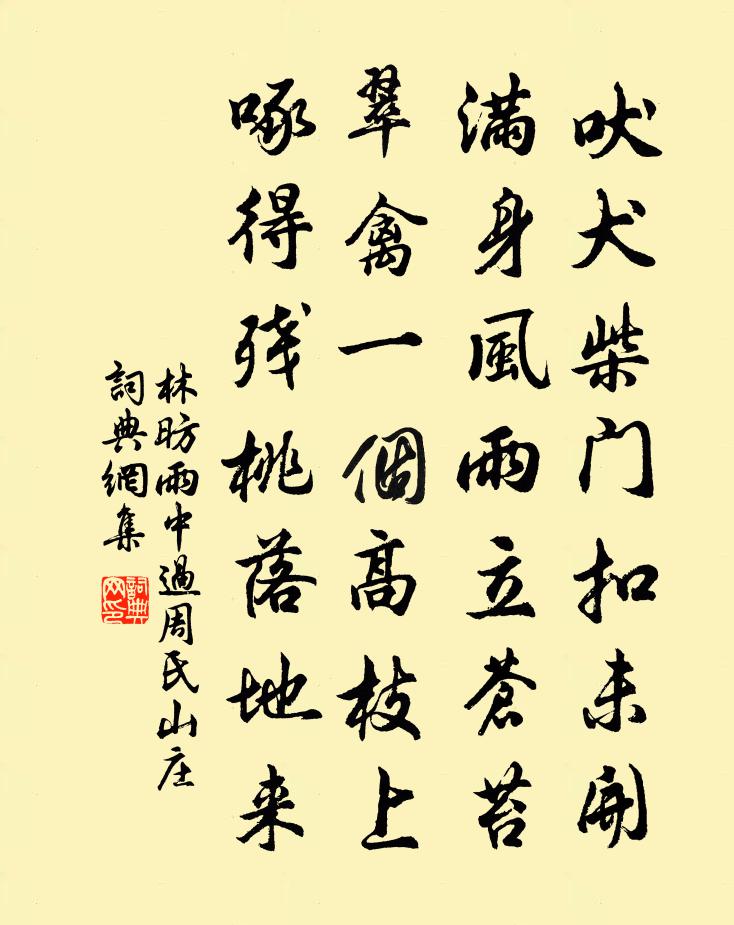 吠犬柴门扣未開
满身風雨立蒼苔
翠禽一個高枝上
啄得残桃落地来
林昉雨中過周氏山庄
詞典網集
詞典
网印